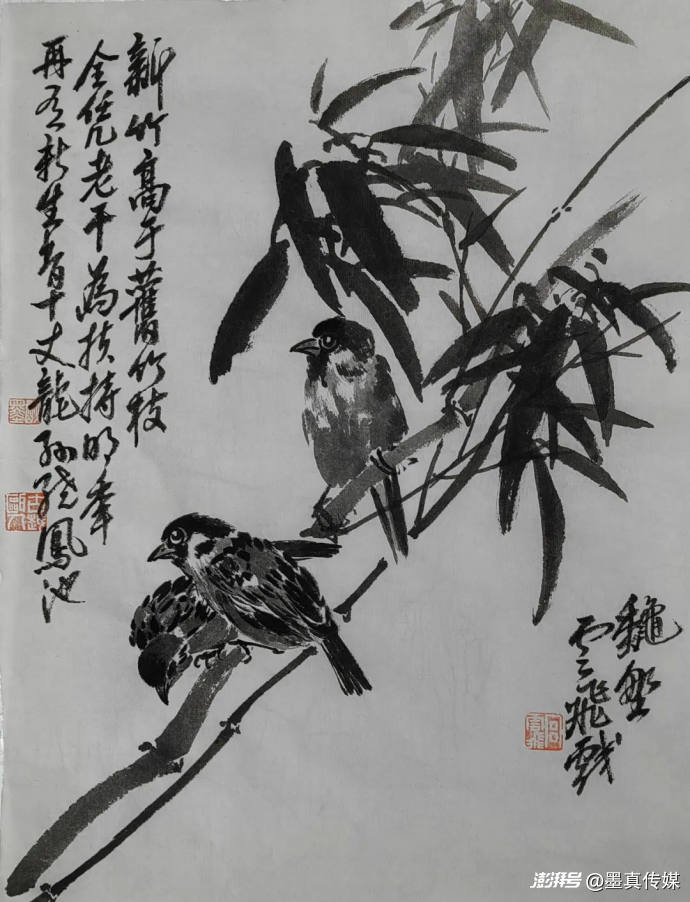 新竹高于舊竹枝
全凭老干為扶持明年
再有新生者十丈龍孫绕鳳池
雲飛戲
澎湃号 @墨真传媒